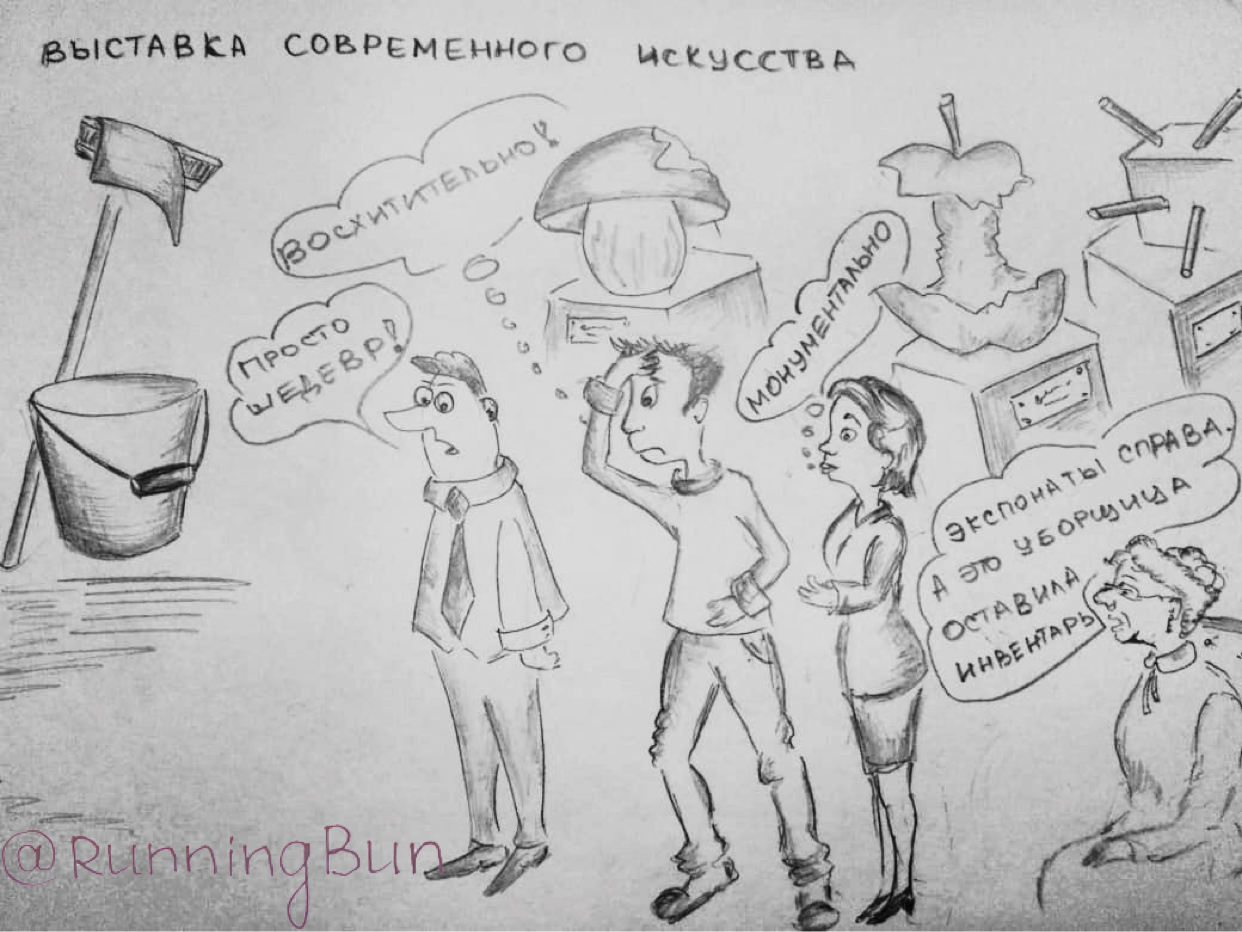 ВЫСТАВКА СОВРЕМЕННОГО ИСКУССТВА
ВОСХИТИТЕЛЬНО!
ПРОСТО
ШЕДЕВР!
МОНУМЕНТАЛЬНО
ЭКСПОНАТЫ СПРАВА.
А ЭТО УБОРЩИЦА
ОСТАВИЛА
ИНВЕНТАРЬ
@RunningBun